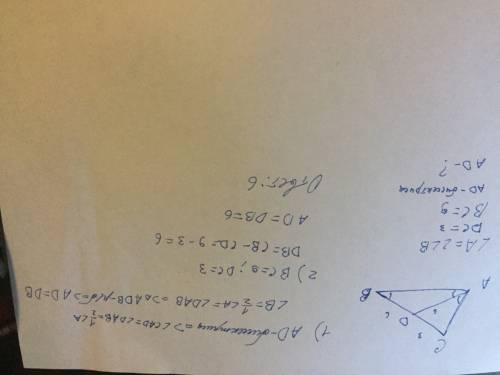 ∠A = 2∠B
DC = 3
BC = 9
AD - биссектриса
AD - ?
C
3
D
6
B
A
1) AD - биссектриса => ∠CAD = ∠DAB = 1/2 ∠A
∠B = 1/2 ∠A = ∠DAB => △ADB - р/б => AD = DB
2) BC = 9; DC = 3
DB = CB - CD = 9 - 3 = 6
AD = DB = 6
Ответ: 6